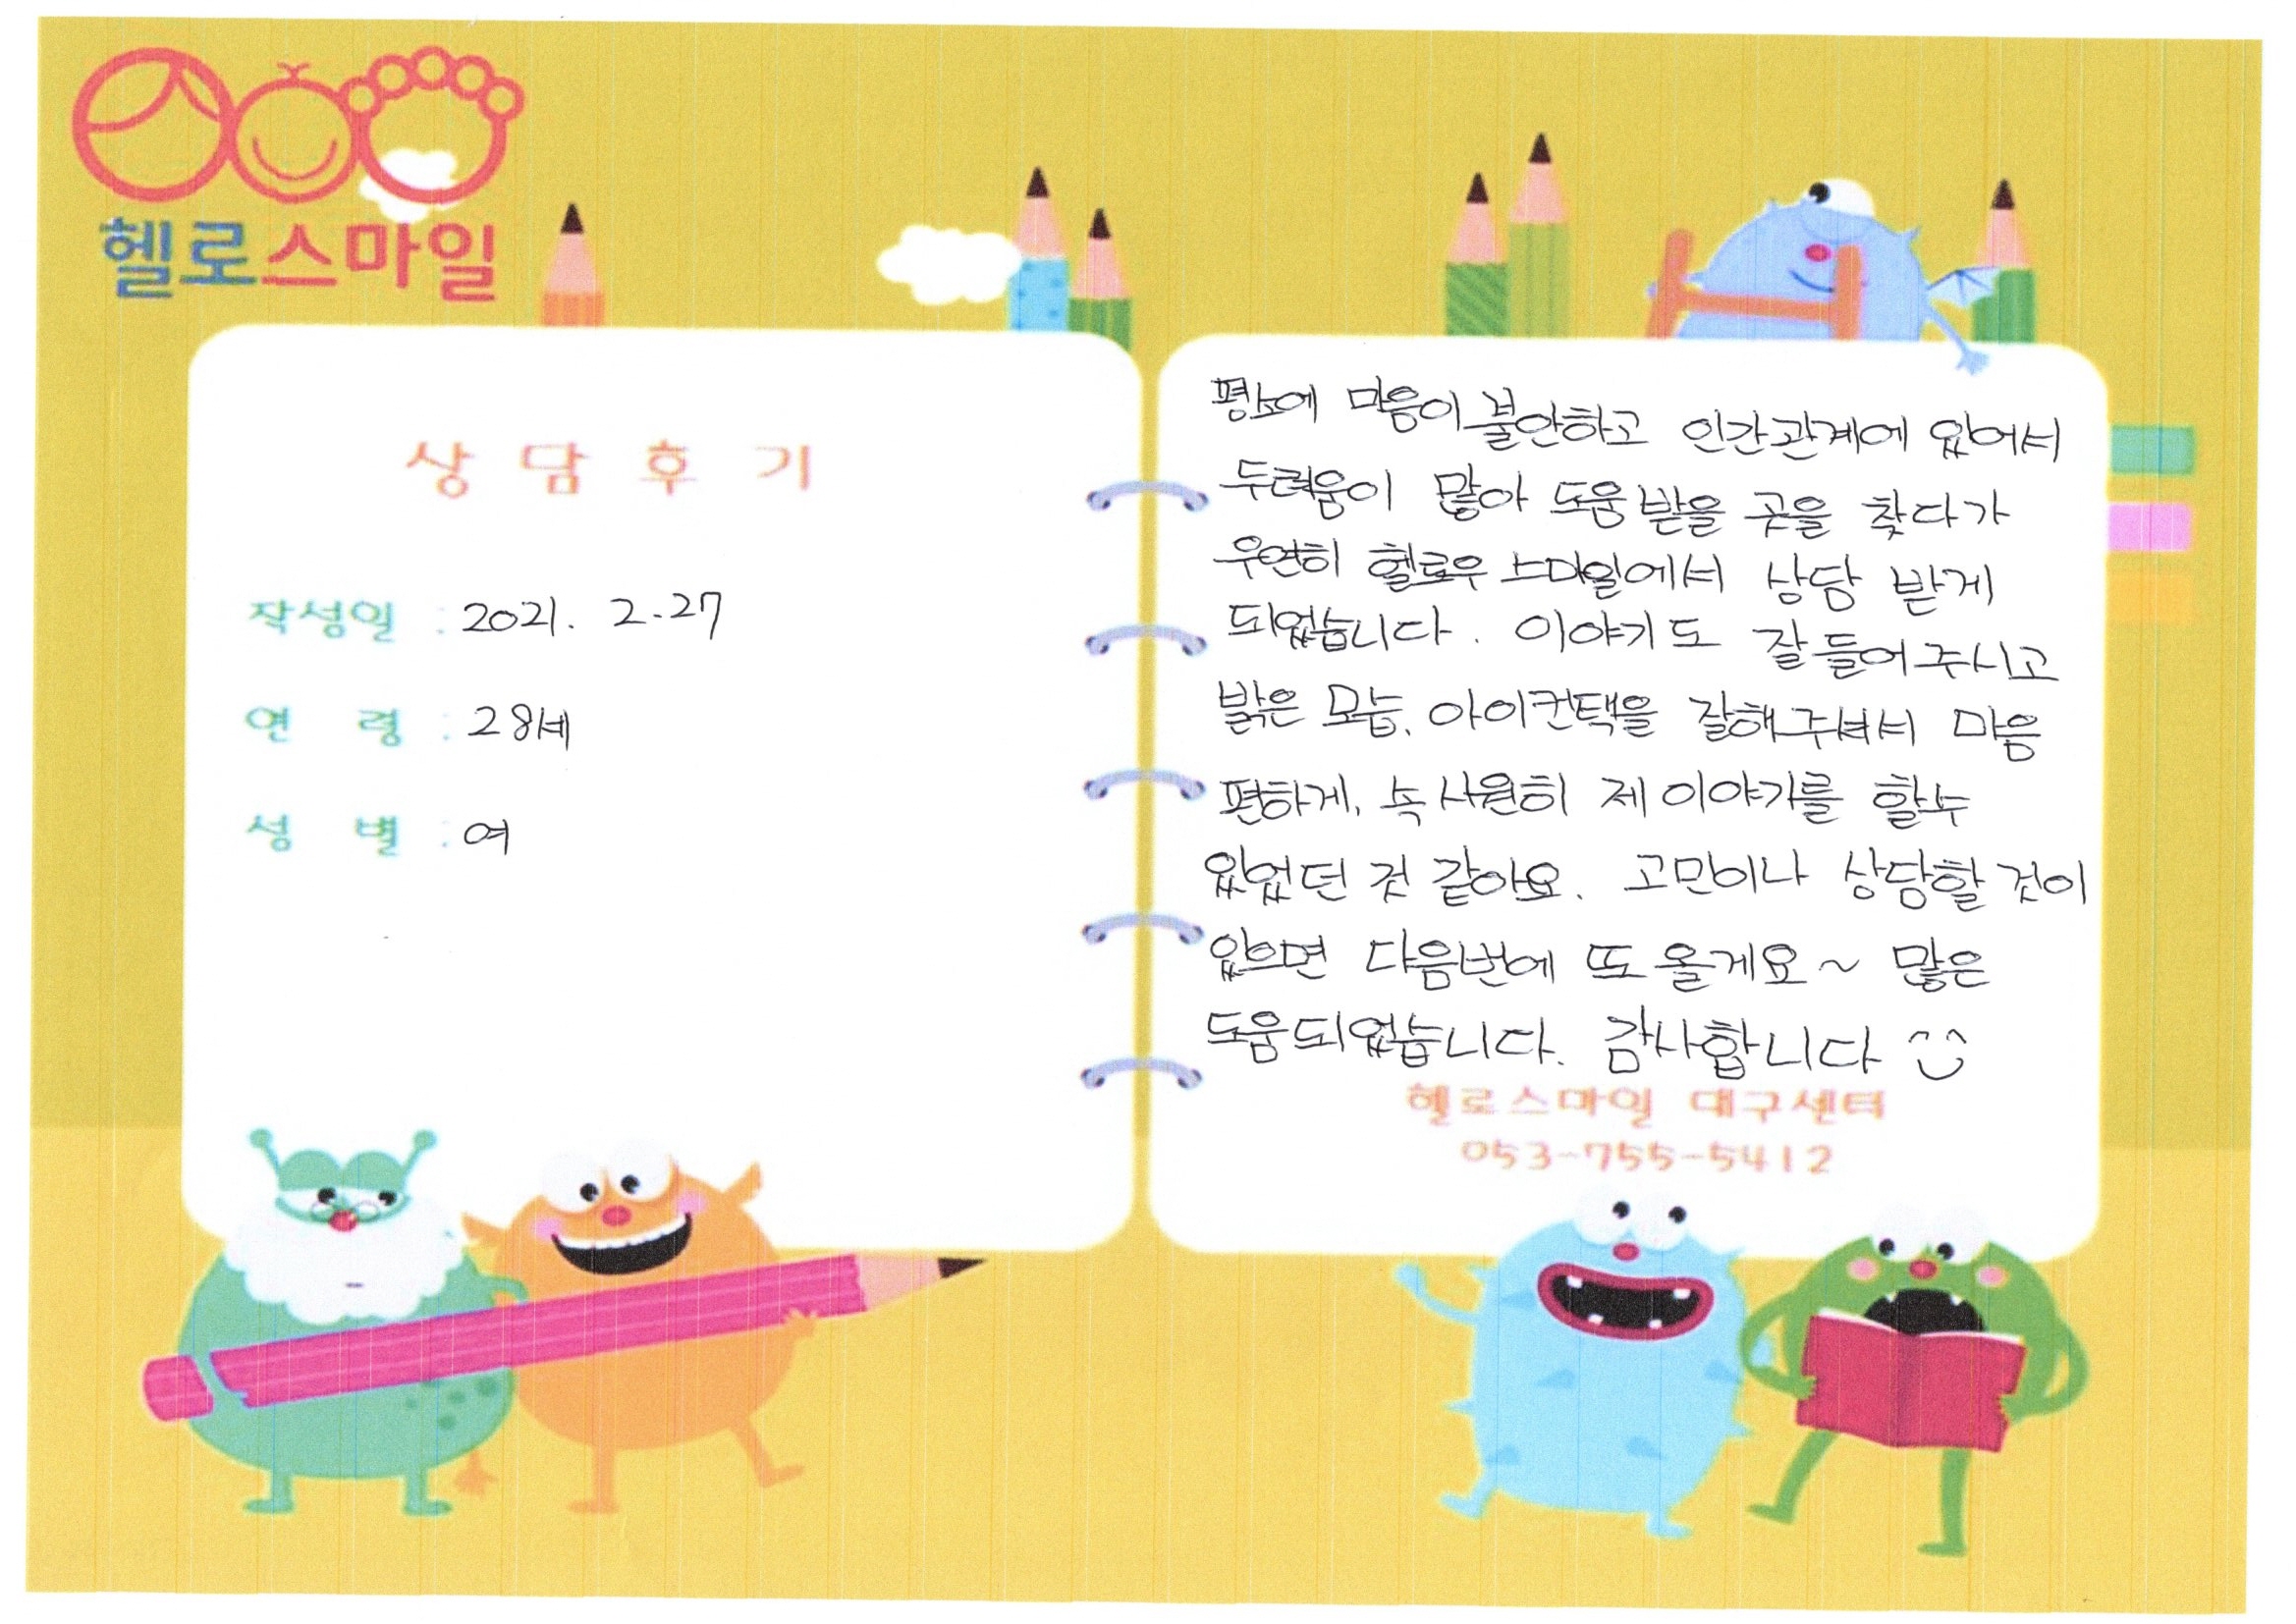 헬로스마일
상담후기
작성일 : 2021. 2. 27
연 령 : 28세
성 별 : 여
평소에 마음이 불안하고 인간관계에 있어서
두려움이 많아 도움 받을 곳을 찾다가
우연히 헬로우 스마일에서 상담 받게
되었습니다. 이야기도 잘 들어주시고
밝은 모습, 아이컨택을 잘해주셔서 마음
편하게, 속 시원히 제 이야기를 할수
있었던 것 같아요. 고민이나 상담할 것이
있으면 다음번에 또 올게요~ 많은
도움되었습니다. 감사합니다 ^^
헬로스마일 대구센터
053-755-5412